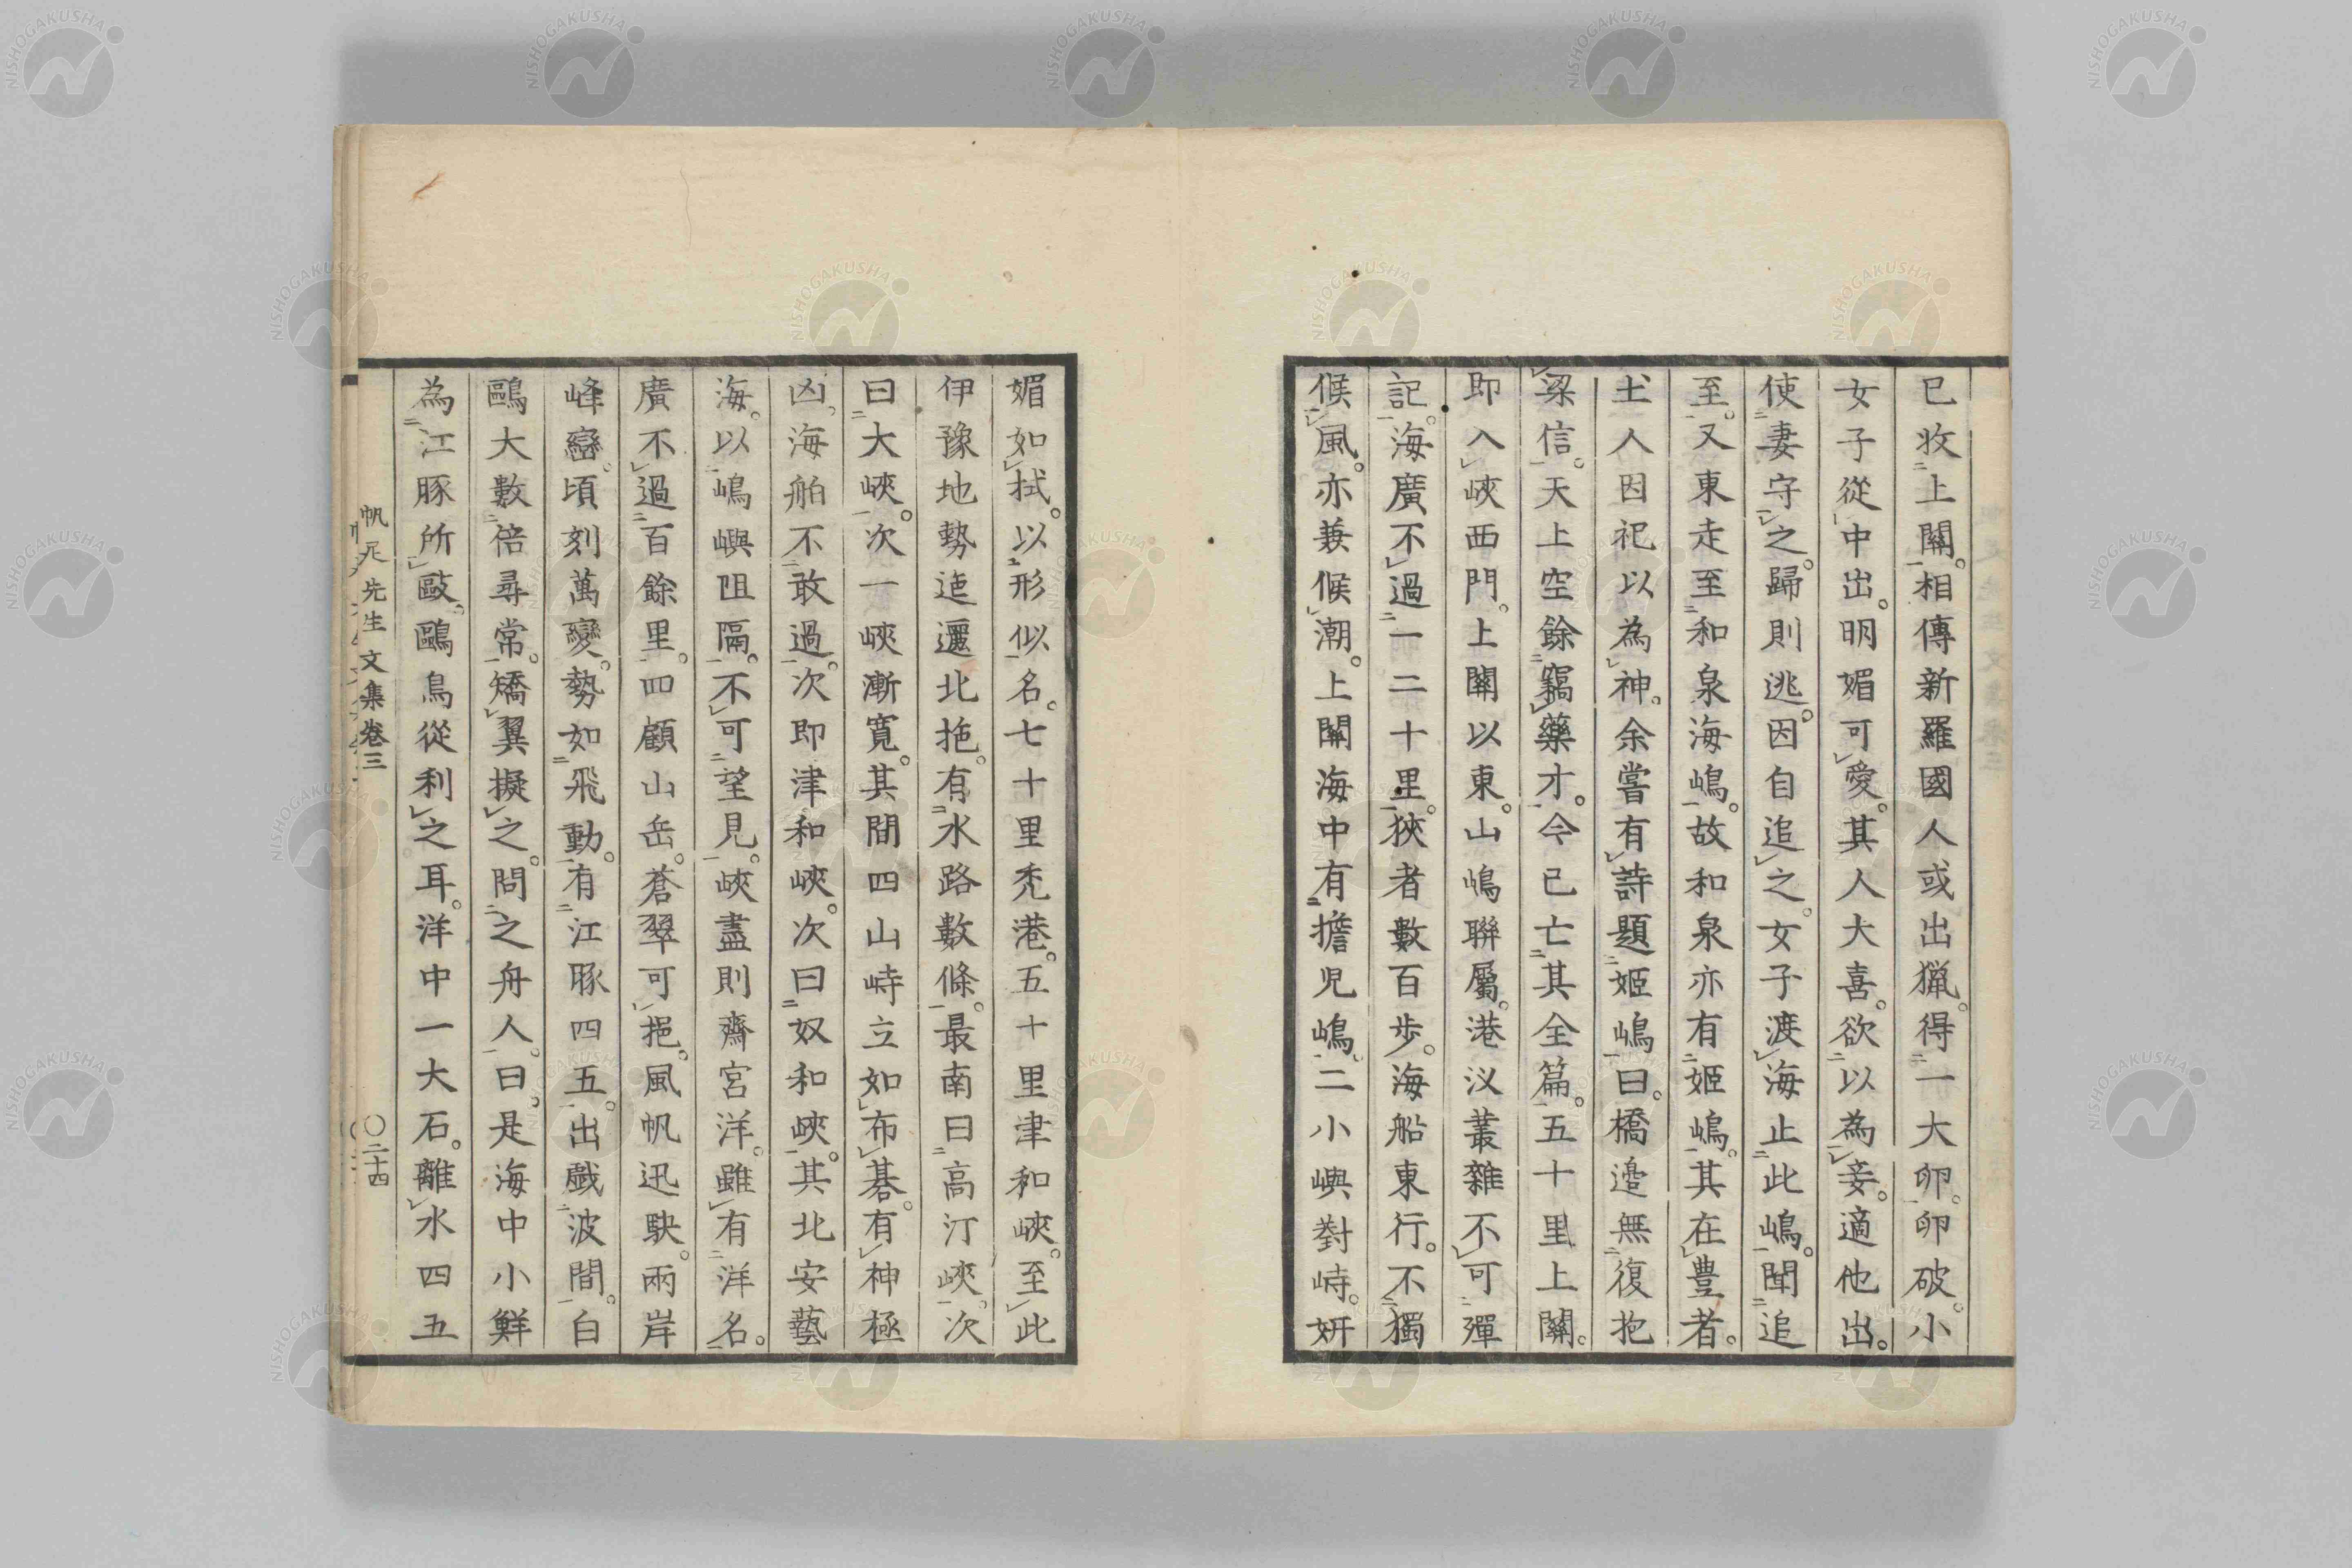 已收上關。相傳新羅國人或出獵。得一大卵。卵破。小
女子從中出。明媚可愛。其人大喜。欲以為妾。適他出。
使妻守之。歸則逃。因自追之。女子渡海止此嶋。聞追
至。又東走至和泉海嶋。故和泉亦有姬嶋。其在豊者。
土人因祀以為神。余嘗有詩題姬嶋曰。橋邉無復抱
梁信。天上空餘竊藥才。今已亡其全篇。五十里上關。
即入峽西門。上關以東。山嶋聯屬。港汊叢雜不可殫
記。海廣不過一二十里。狹者數百歩。海船東行。不獨
候風。亦兼候潮。上關海中有擔児嶋。二小嶼對峙。妍
媚如拭。以形似名。七十里禿港。五十里津和峽。至此
伊豫地勢迤邐北拖。有水路數條。最南曰高汀峽。次
曰大峽。次一峽漸寬。其間四山峙立如布碁。有神極
凶。海舶不敢過。次即津和峽。次曰奴和峽。其北安藝
海。以嶋嶼阻隔。不可望見。峽盡則齋宮洋。雖有洋名。
廣不過百餘里。四顧山岳。蒼翠可挹。風帆迅駃。兩岸
峰巒。頃刻萬變。勢如飛動。有江豚四五。出戲波間。白
鷗大數倍尋常。矯翼擬之。問之舟人。曰。是海中小鮮
為江豚所敺。鷗鳥從利之耳。洋中一大石。離水四五
帆足先生文集卷三 〇二十四